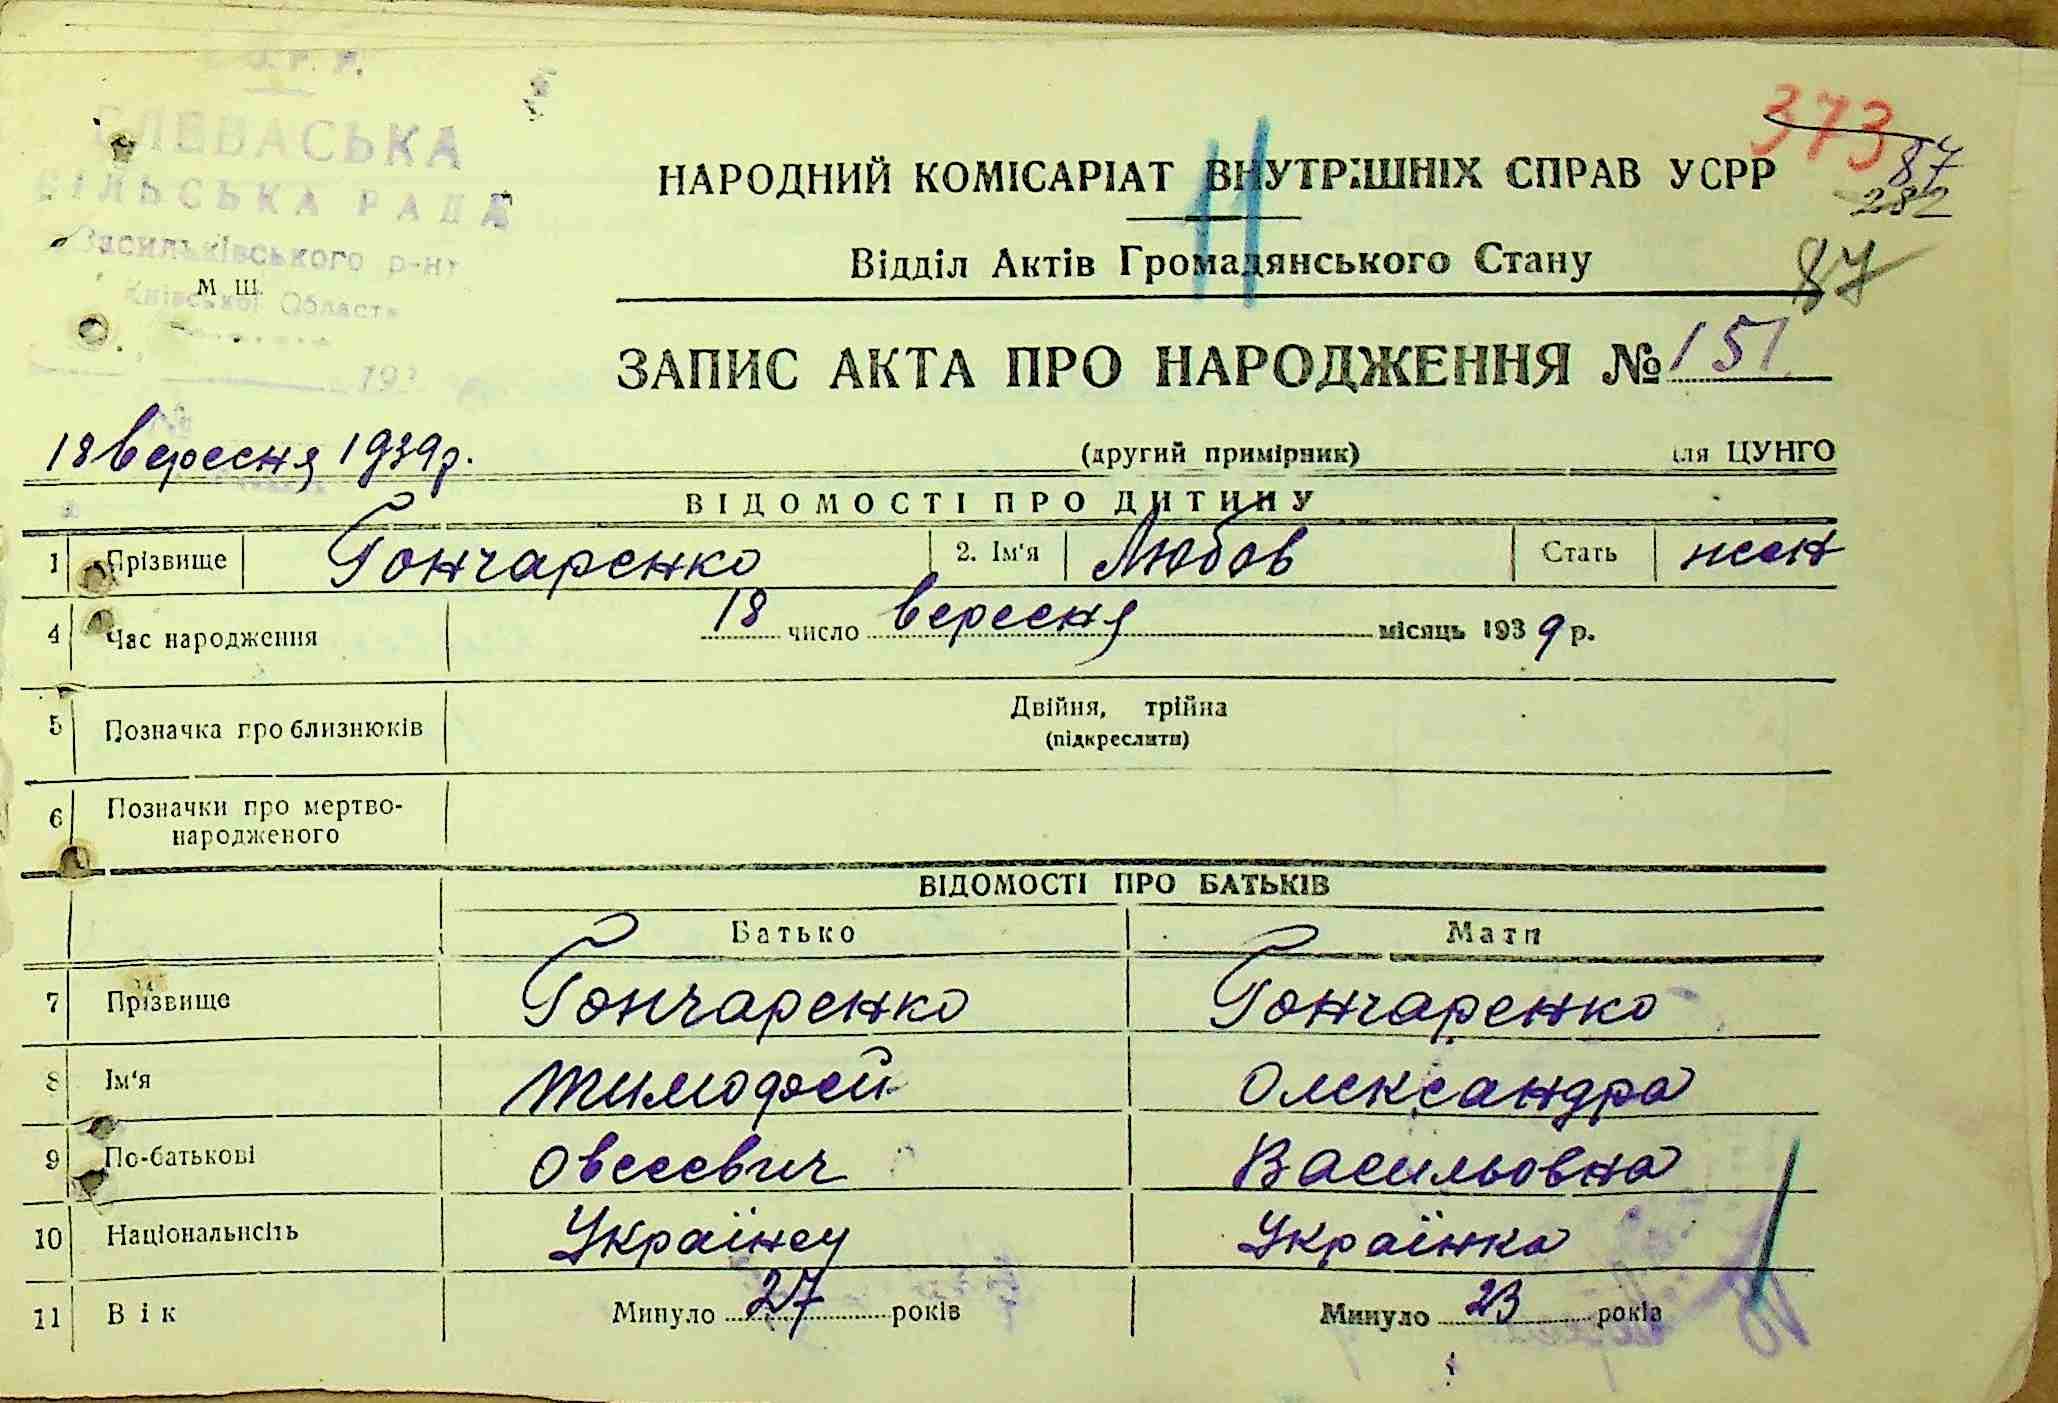 ВАСЬКА
СІЛЬСЬКА РАДА
Васильківського р-ну
Київської Области
М Ш.
193
№
373
87
282
87
11
НАРОДНИЙ КОМІСАРІАТ ВНУТРІШНІХ СПРАВ УСРР
Відділ Актів Громадянського Стану
ЗАПИС АКТА ПРО НАРОДЖЕННЯ № 151
18 вересня 1939р. (другий примірник) для ЦУНГО
ВІДОМОСТІ ПРО ДИТИНУ
1 Прізвище Гончаренко 2. Ім'я Любов Стать жен
4 Час народження 18 число вересня місяць 1939 р.
5 Позначка про близнюків Двійня, трійна
(підкреслити)
6 Позначки про мертво-
народженого
ВІДОМОСТІ ПРО БАТЬКІВ
Батько Мати
7 Прізвище Гончаренко Гончаренко
8 Ім'я Тимофей Олександра
9 По-батькові Овсеевич Васильовна
10 Національність Українец Українка
11 Вік Минуло 27 років Минуло 23 років